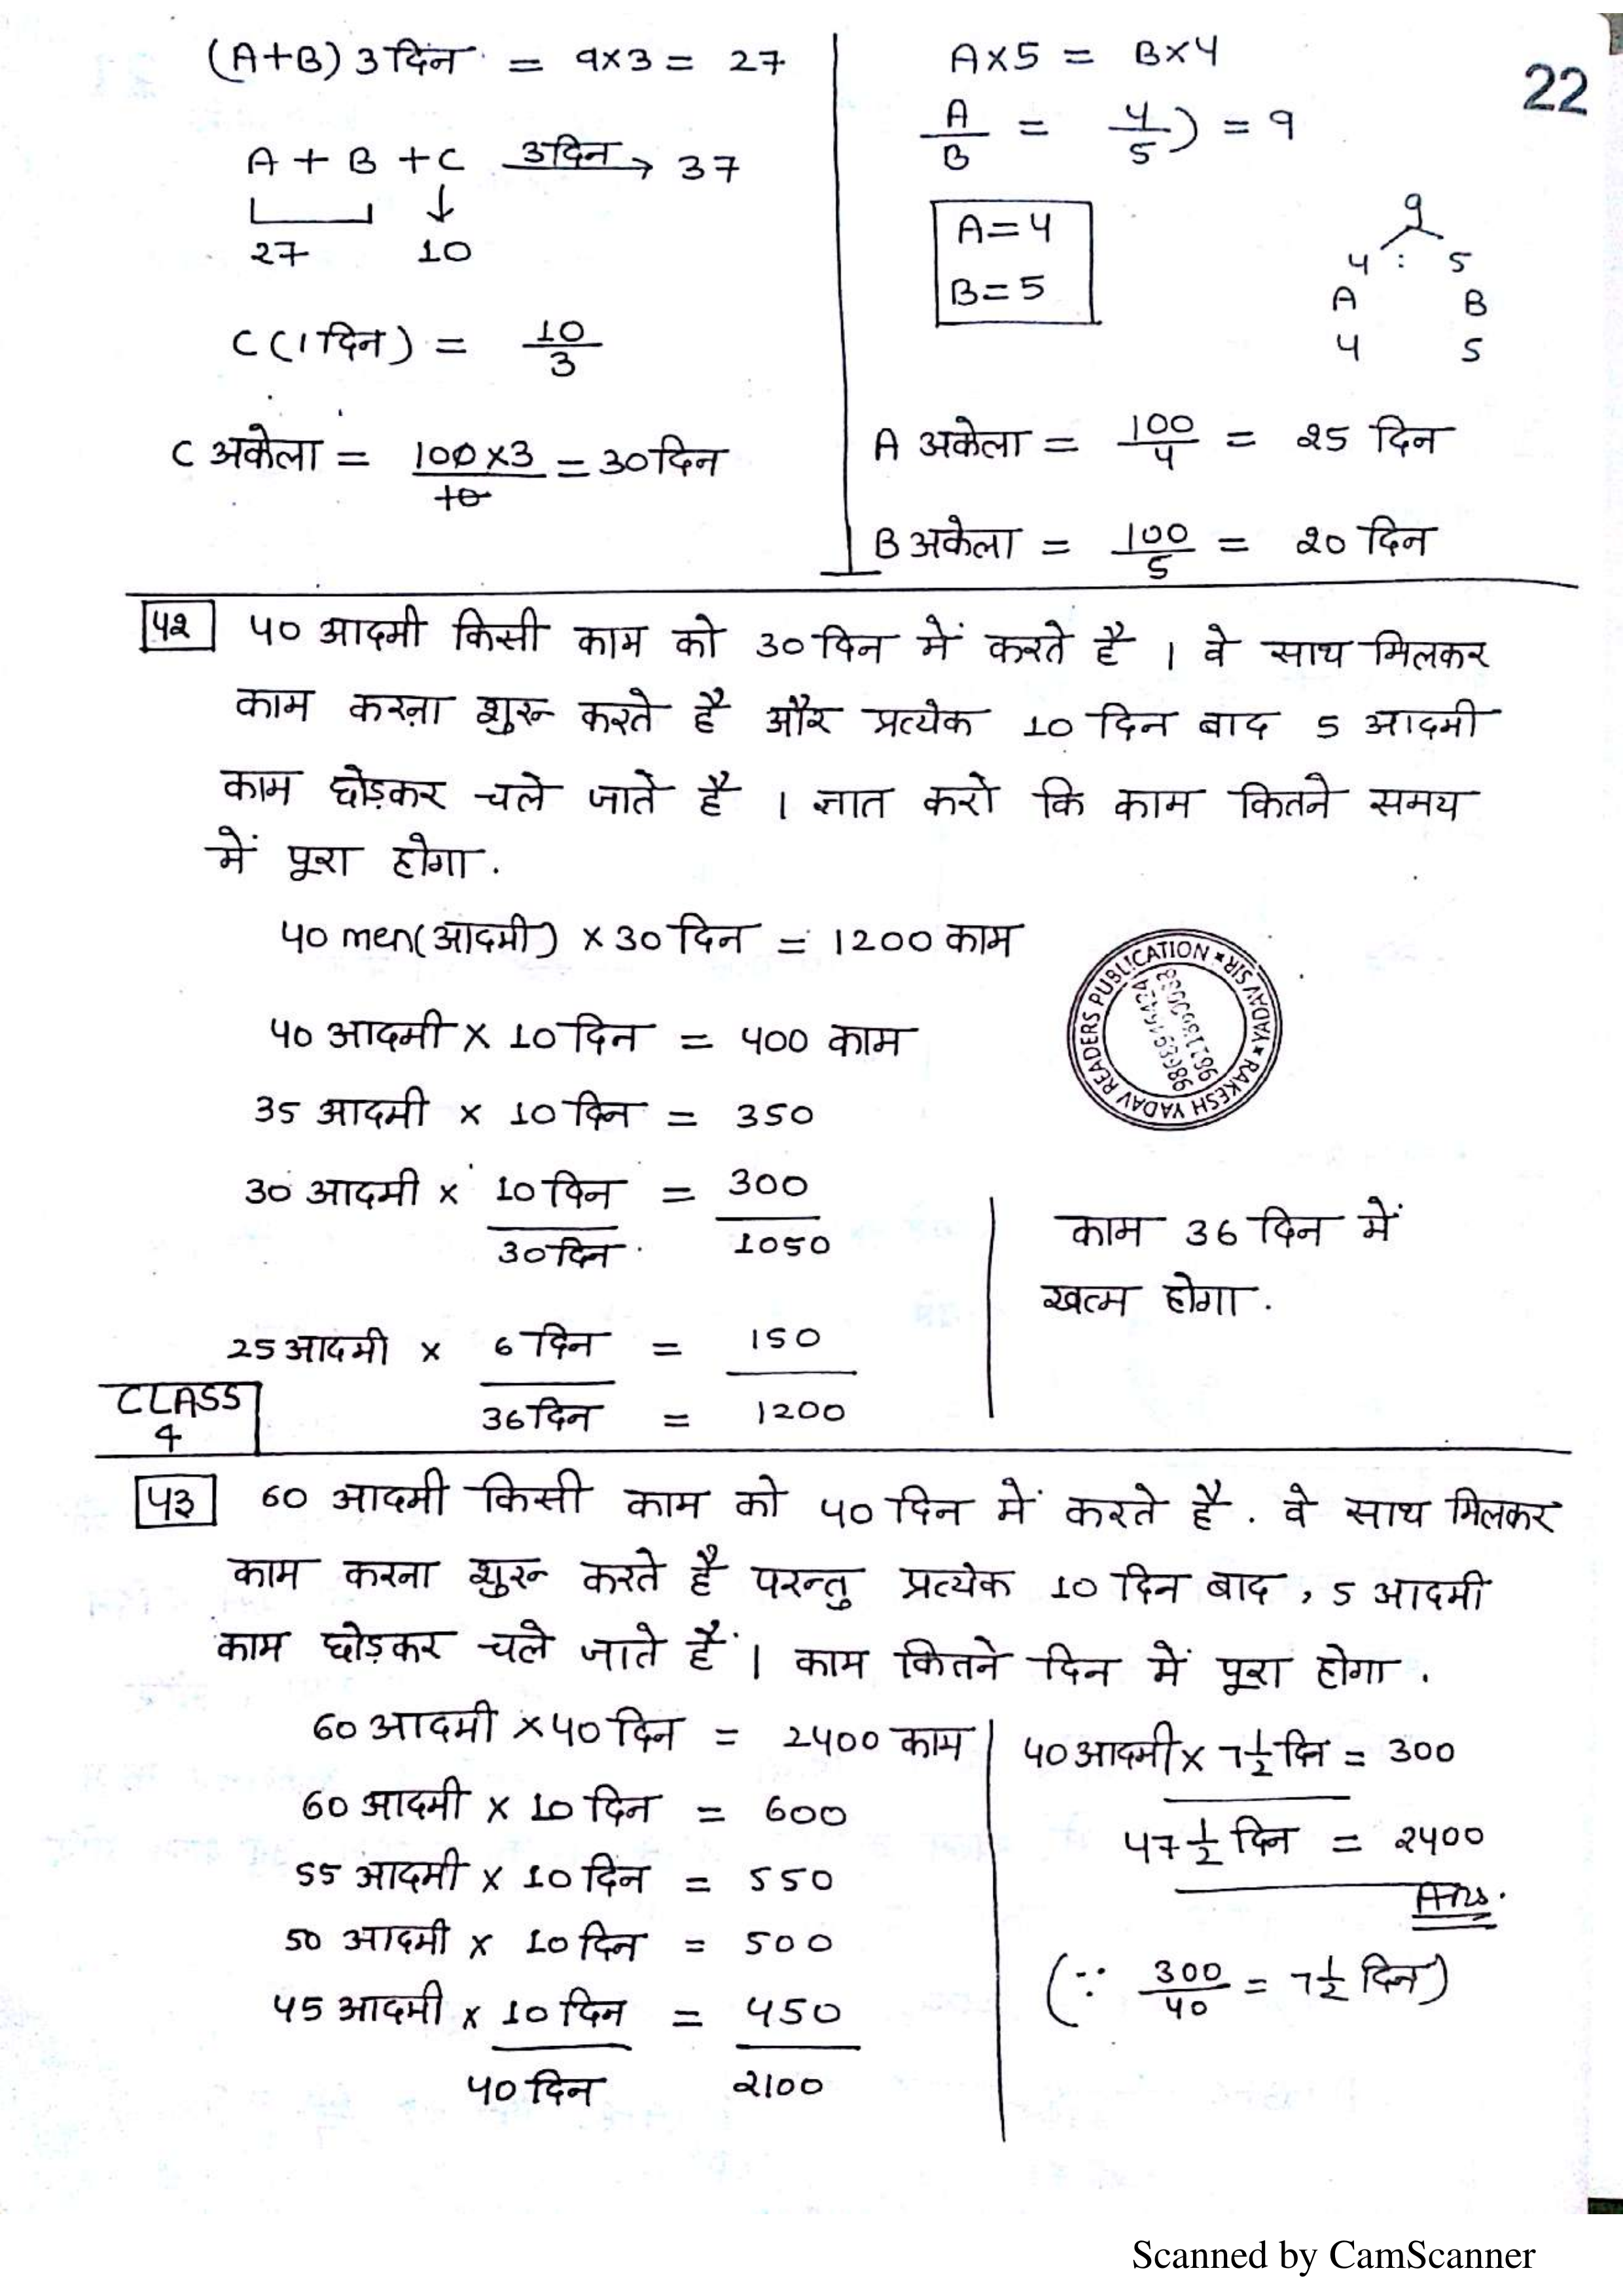 22
(A+B) 3 दिन = 9×3 = 27
A + B + C 3दिन → 37
27 ↓ 10
C (1 दिन) = 10/3
C अकेला = 100×3/10 = 30 दिन
A×5 = B×4
A/B = 4/5) = 9
A=4
B=5
9
4 : 5
A B
4 5
A अकेला = 100/4 = 25 दिन
B अकेला = 100/5 = 20 दिन
42 40 आदमी किसी काम को 30 दिन में करते है । वे साथ मिलकर
काम करना शुरू करते है और प्रत्येक 10 दिन बाद 5 आदमी
काम छोड़कर चले जाते है । ज्ञात करो कि काम कितने समय
में पूरा होगा.
40 men(आदमी) × 30 दिन = 1200 काम
40 आदमी × 10 दिन = 400 काम
35 आदमी × 10 दिन = 350
30 आदमी × 10 दिन = 300
30 दिन 1050
25 आदमी × 6 दिन = 150
36 दिन = 1200
काम 36 दिन में
खत्म होगा.
READERS PUBLICATION * RAKESH YADAV SIR * YADAV
CLASS
4
43 60 आदमी किसी काम को 40 दिन में करते है. वे साथ मिलकर
काम करना शुरू करते है परन्तु प्रत्येक 10 दिन बाद, 5 आदमी
काम छोड़कर चले जाते हैं । काम कितने दिन में पूरा होगा.
60 आदमी × 40 दिन = 2400 काम
60 आदमी × 10 दिन = 600
55 आदमी × 10 दिन = 550
50 आदमी × 10 दिन = 500
45 आदमी × 10 दिन = 450
40 दिन 2100
40 आदमी × 7 1/2 दिन = 300
47 1/2 दिन = 2400
Ans.
(∵ 300/40 = 7 1/2 दिन)
Scanned by CamScanner